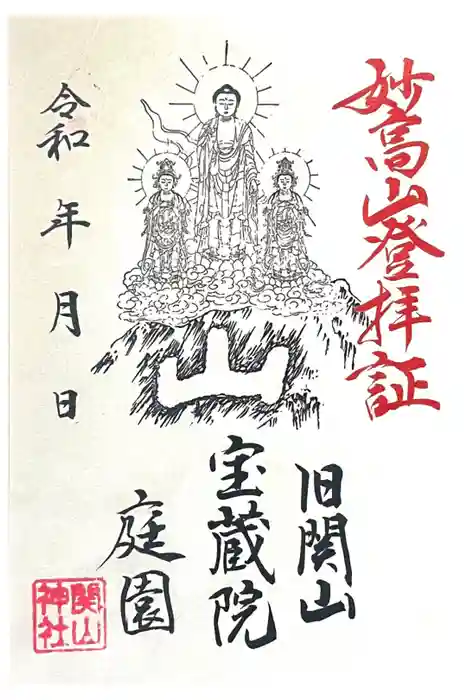 妙高山登拝証
山
旧関山
宝蔵院
庭園
令和 年 月 日
関山
神社